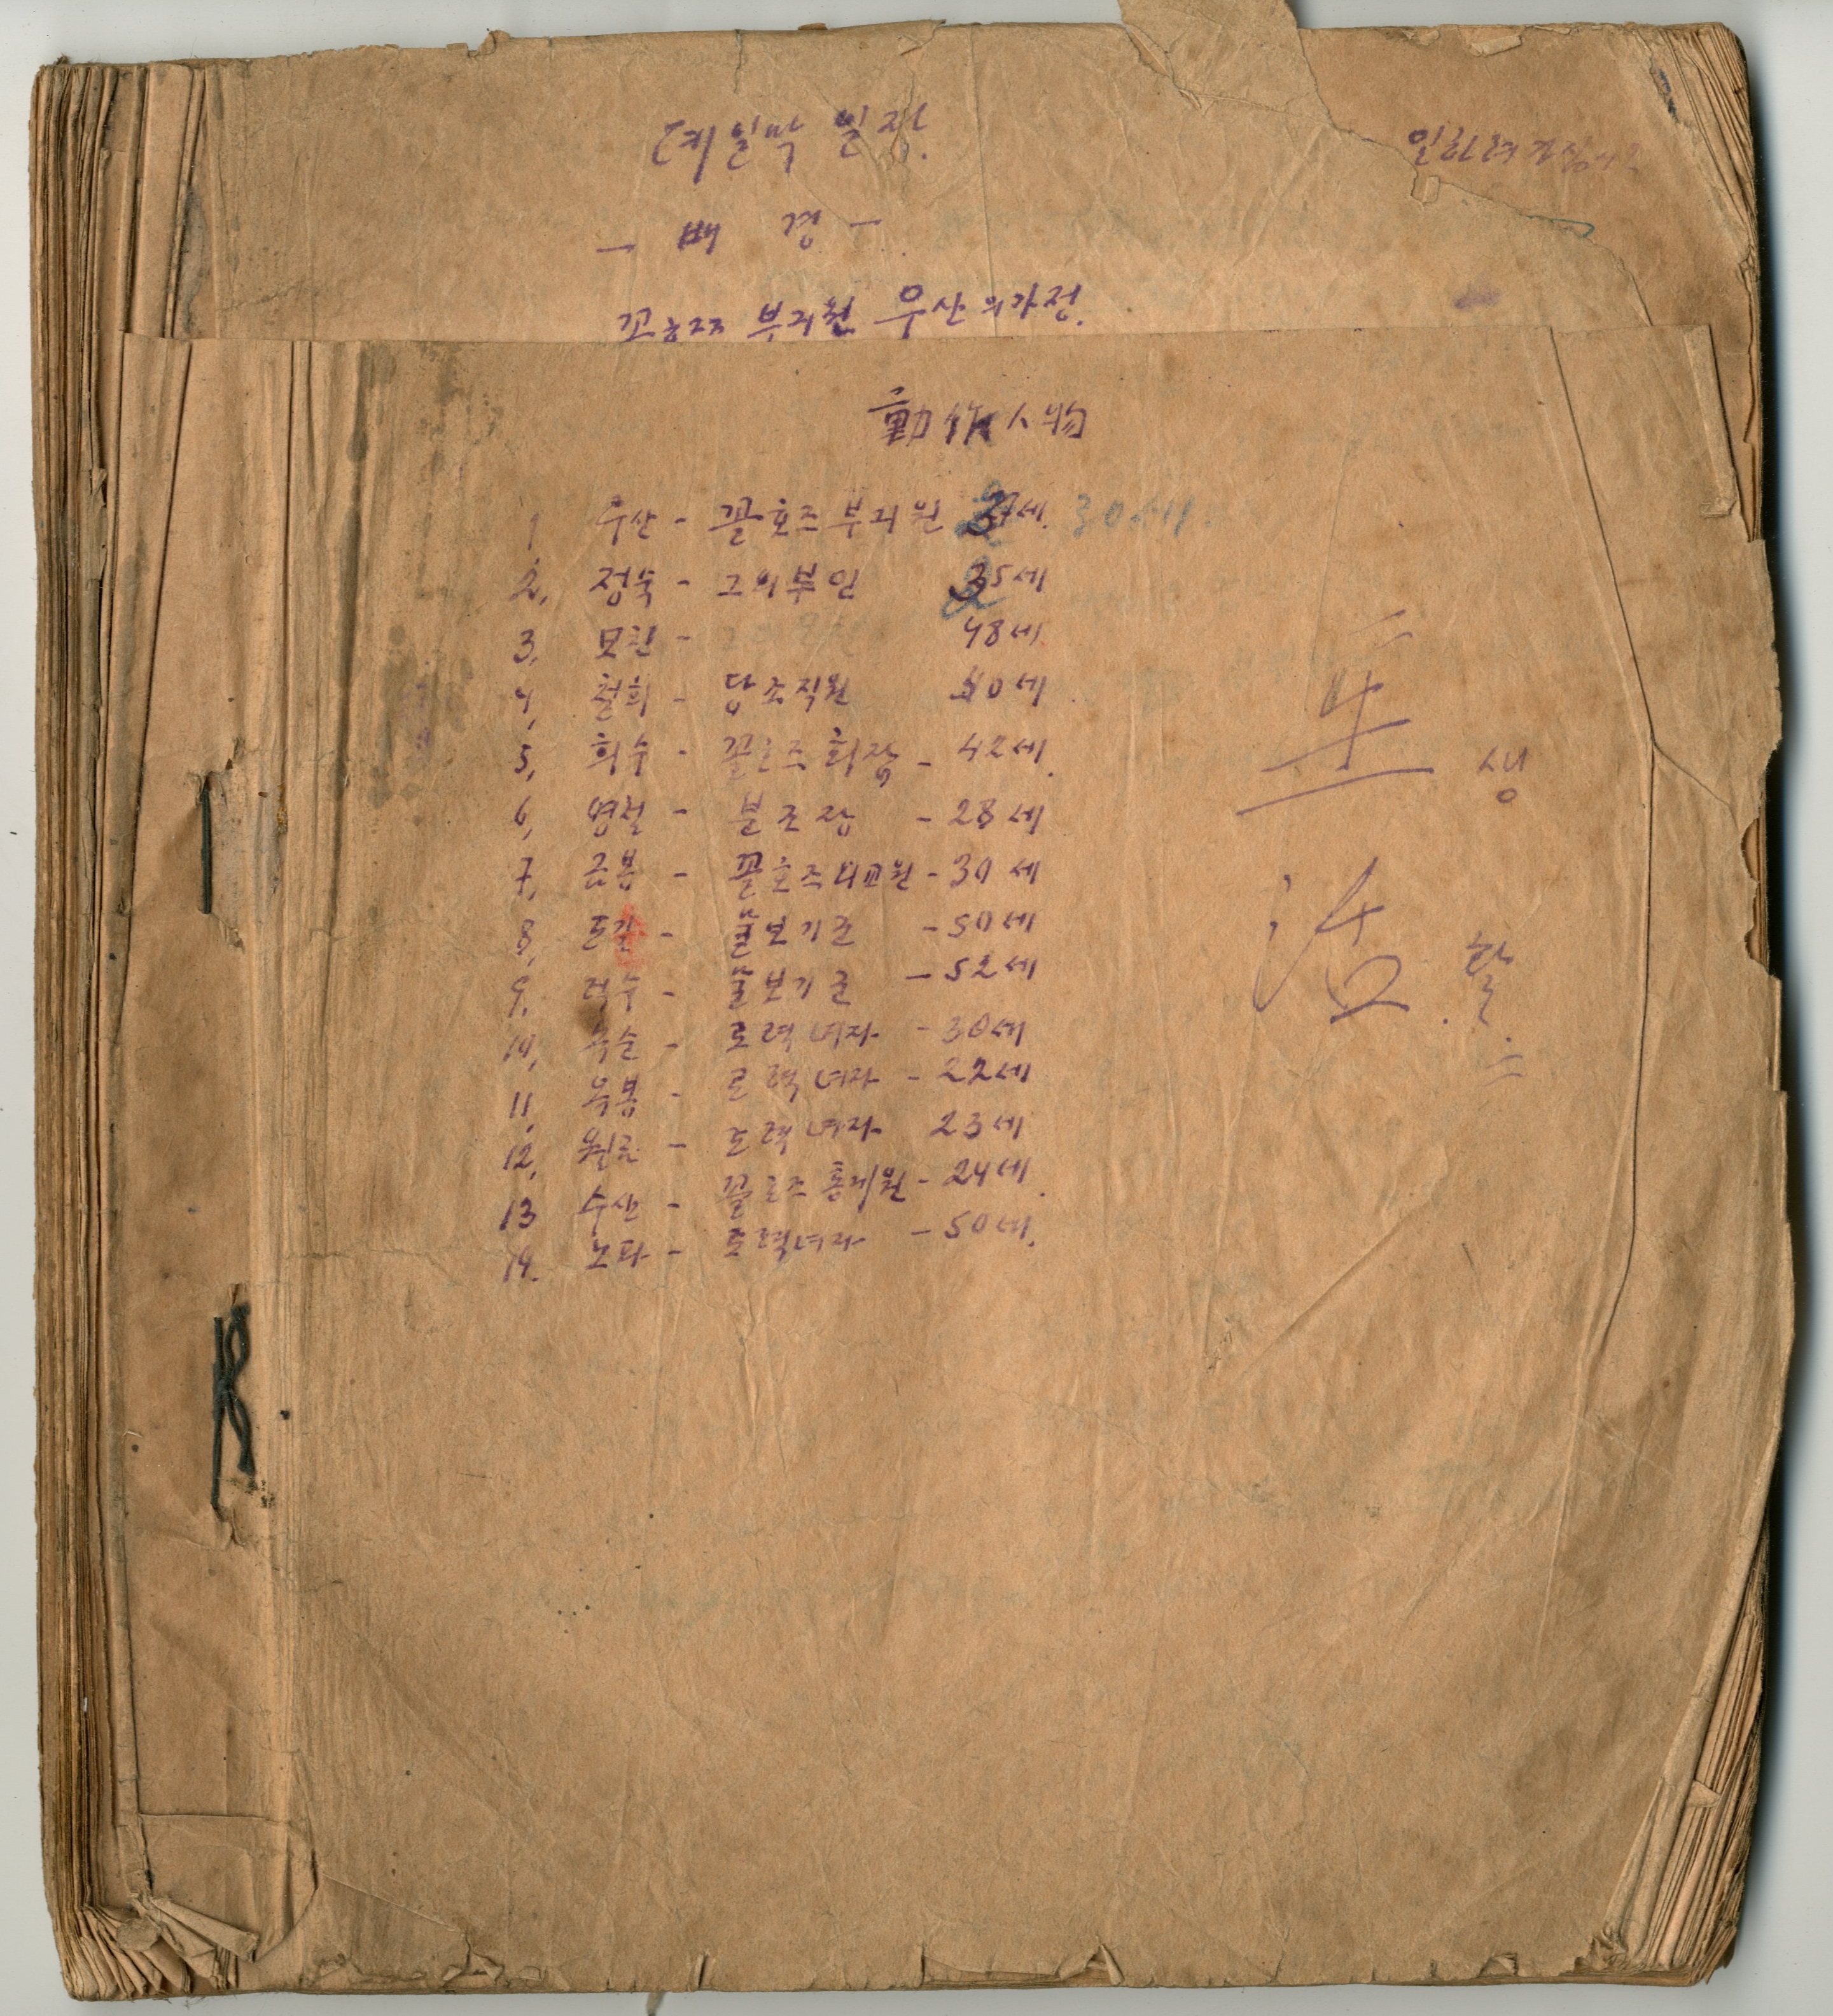 데일막 일장.
— 배 경 —
꼴호즈 부긔원 우산의가정.
動作人物
1 우산 - 꼴호즈부긔원 37세. 30세.
2, 정숙 - 그의부인 35세
3, 모친 - 48세.
4, 철희 - 당조직원 40세
5, 희수 - 꼴호즈회장 - 42세.
6, 명철 - 분조장 - 28세
7, 금봉 - 꼴호즈 원 - 30세
8, - 물보기군 - 50세
9, 덕수 - 물보기군 - 52세
10, 옥순 - 로력녀자 - 30세
11, 옥봉 - 로력녀자 - 22세
12, - 로력녀자 23세
13 수산 - 꼴호즈통계원 - 24세.
14. 노파 - 로력녀자 - 50세.
生 생
活 활.